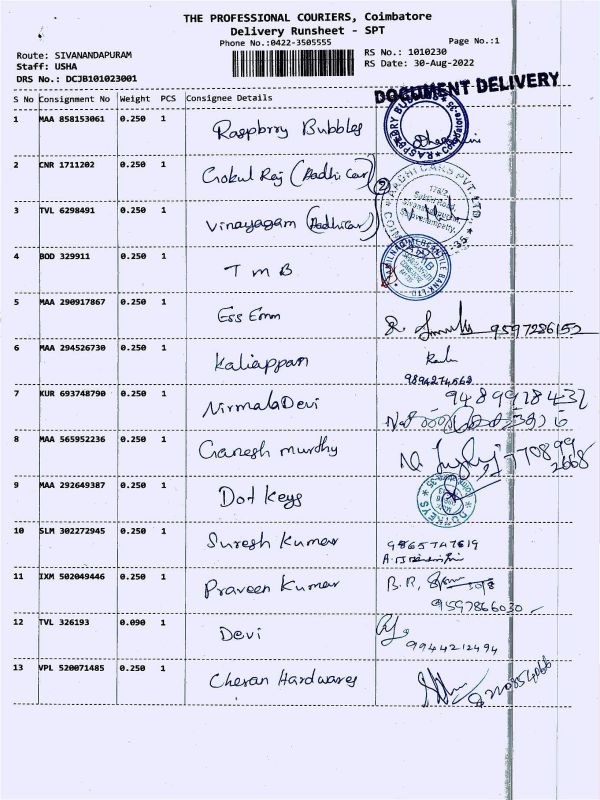 THE PROFESSIONAL COURIERS, Coimbatore
Delivery Runsheet - SPT
Phone No.:0422-3505555
Page No.:1
Route: SIVANANDAPURAM
RS No.: 1010230
Staff: USHA
RS Date: 30-Aug-2022
DRS No.: DCJB101023001
DOCUMENT DELIVERY
S No Consignment No Weight PCS Consignee Details
1 MAA 858153061 0.250 1 Raspbrry Bubbles
RASPBRRY BUBBLES
2 CNR 1711202 0.250 1 Gokul Raj (Aadhi Car) 2
AADHI CARS PVT. LTD
3 TVL 6298491 0.250 1 Vinayagam (Aadhi Car)
4 BOD 329911 0.250 1 T M B
5 MAA 290917867 0.250 1 Ess Emm
9597286152
6 MAA 294526730 0.250 1 Kaliappan
9894274562
7 KUR 693748790 0.250 1 NirmalaDevi
8 MAA 565952236 0.250 1 Ganesh murthy
9 MAA 292649387 0.250 1 Dot Keys
DOT KEYS
10 SLM 302272945 0.250 1 Suresh Kumar
9865747619
11 IXM 502049446 0.250 1 Praveen Kumar B.R.
9597866030
12 TVL 326193 0.090 1 Devi
9944212494
13 VPL 520071485 0.250 1 Cheran Hardwares